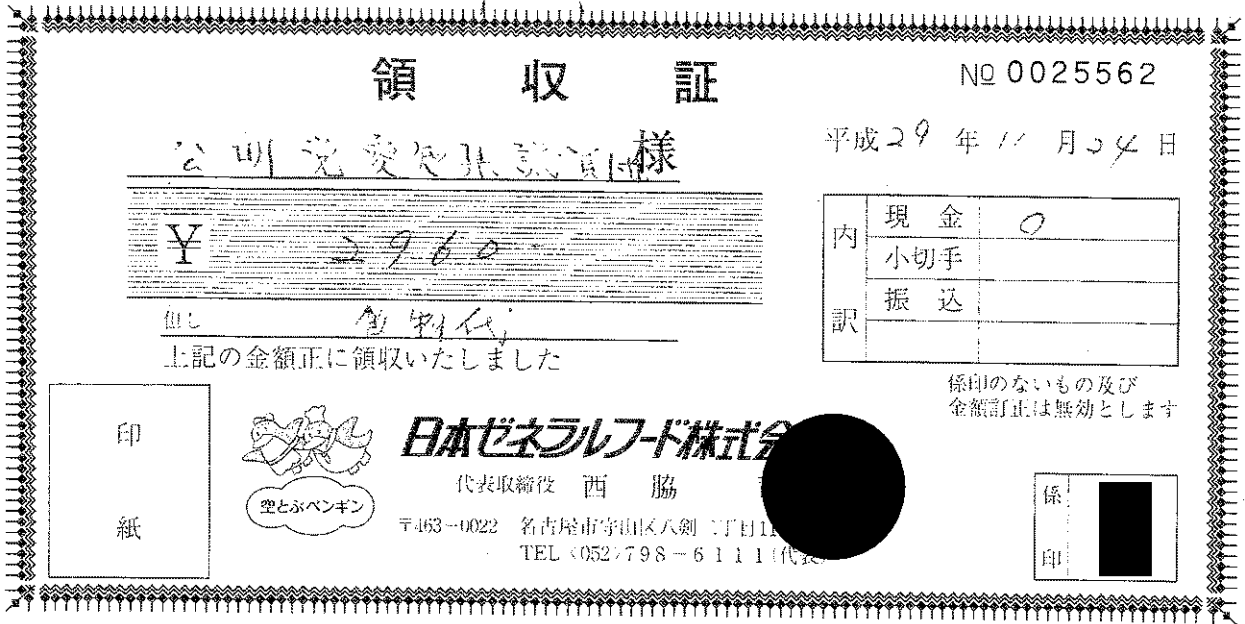 領収証
№ 0025562
公明党愛知県議員団様
平成29年11月24日
¥ 2960-
内訳
現金 0
小切手
振込
但し 弁当代
上記の金額正に領収いたしました
係印のないもの及び
金額訂正は無効とします
印紙
空とぶペンギン
日本ゼネラルフード株式会
代表取締役 西脇
〒463-0022 名古屋市守山区八剣二丁目11
TEL (052)798-6111(代表)
係印